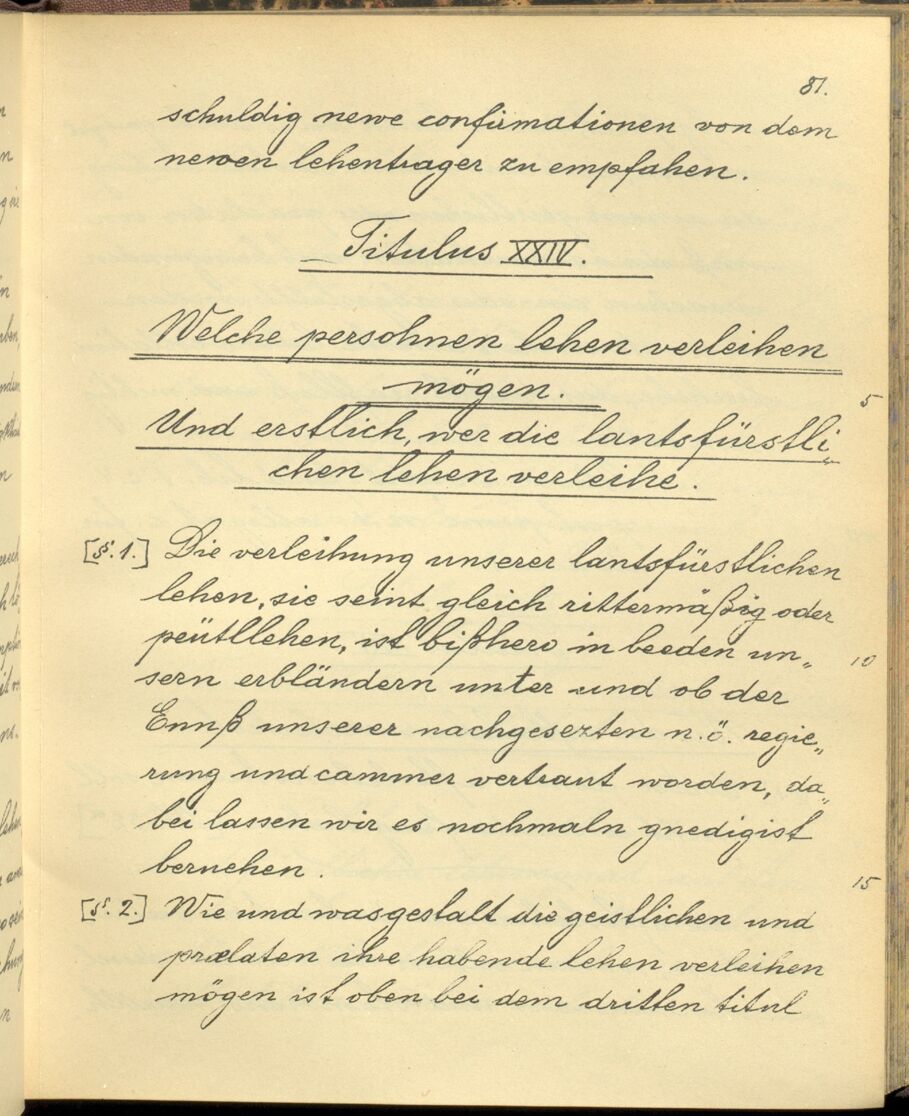 81.
schuldig newe confirmationen von dem
newen lehentrager zu empfahen.
Titulus XXIV.
Welche persohnen lehen verleihen
mögen.
5
Und erstlich, wer die lantsfürstli„
chen lehen verleihe.
[§. 1.] Die verleihung unserer lantsfürstlichen
lehen, sie seint gleich rittermäßig oder
peütllehen, ist bißhero in beeden un„
10
sern erbländern unter und ob der
Ennß unserer nachgesezten n.ö. regie„
rung und cammer vertraut worden, da„
bei lassen wir es nochmaln gnedigist
beruehen.
15
[§. 2.] Wie und wasgestalt die geistlichen und
prælaten ihre habende lehen verleihen
mögen ist oben bei dem dritten titul